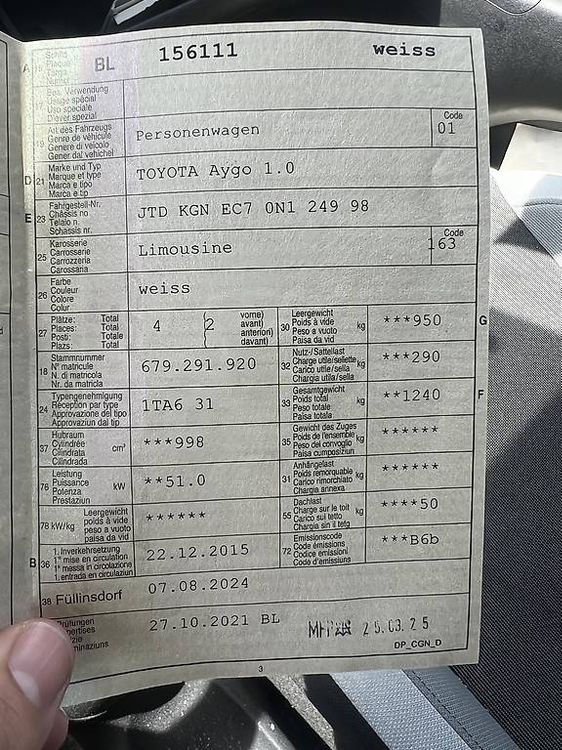 A 15 Schild Plaque Targa Numer BL 156111 weiss
17 Bes. Verwendung
Usage spécial
Uso speciale
Diever spezial
19 Art des Fahrzeugs Personenwagen Code 01
Genre de véhicule
Genere di veicolo
Gener dal vehichel
D 21 Marke und Typ TOYOTA Aygo 1.0
Marque et type
Marca e tipo
Marca e tip
E 23 Fahrgestell-Nr. JTD KGN EC7 0N1 249 98
Châssis no
Telaio n.
Schassis nr.
25 Karosserie Limousine Code 163
Carrosserie
Carrozzeria
Carossaria
26 Farbe weiss
Couleur
Colore
Colur
27 Plätze: Total 4 (2 vorne)
Places: Total avant)
Posti: Totale anteriori)
Plazs: Total davant)
30 Leergewicht kg ***950 G
Poids à vide
Peso a vuoto
Paisa da vid
18 Stammnummer 679.291.920
N° matricule
N. di matricola
Nr. da matricla
32 Nutz-/Sattellast kg ***290
Charge utile/sellette
Carico utile/sella
Chargia utila/sella
24 Typengenehmigung 1TA6 31
Réception par type
Approvazione del tipo
Approvaziun dal tip
33 Gesamtgewicht kg **1240 F
Poids total
Peso totale
Paisa totala
37 Hubraum cm³ ***998
Cylindrée
Cilindrata
Cilindrada
35 Gewicht des Zuges kg ******
Poids de l'ensemble
Peso del convoglio
Paisa cumposiziun
76 Leistung kW **51.0
Puissance
Potenza
Prestaziun
31 Anhängelast kg ******
Poids remorquable
Carico rimorchiato
Chargia annexa
78 kW/kg Leergewicht ******
poids à vide
peso a vuoto
paisa da vid
55 Dachlast kg ****50
Charge sur le toit
Carico sul tetto
Chargia sin il tetg
B 36 1. Inverkehrsetzung 22.12.2015
1re mise en circulation
1a messa in circolazione
1. entrada en circulaziun
72 Emissionscode ***B6b
Code émissions
Codice emissioni
Code d'emissiuns
38 Füllinsdorf 07.08.2024
Prüfungen 27.10.2021 BL
25.03.25
DP_CGN_D
3